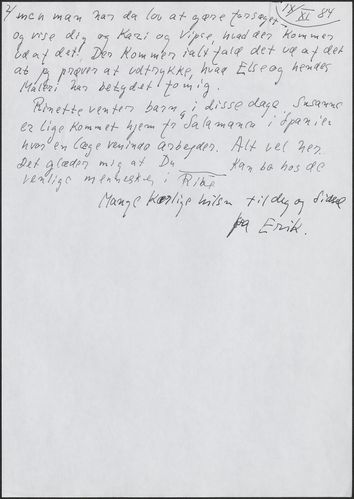 2/ men man har da lov at gøre forsøget
IX/XI 84
og vise dig og Kari og Vipse, hvad der kommer
ud af det. Der kommer i alt fald det ud af det
at jeg prøver at udtrykke, hvad Else og hendes
Maleri har betydet for mig.
Rinette venter barn, i disse dage. Susanne
er lige kommet hjem fra Salamanca i Spanien
hvor en læge veninde arbejder. Alt vel her.
Det glæder mig at Du kan bo hos de
venlige mennesker i Ribe
Mange kærlige hilsn til dig og
fra Erik.